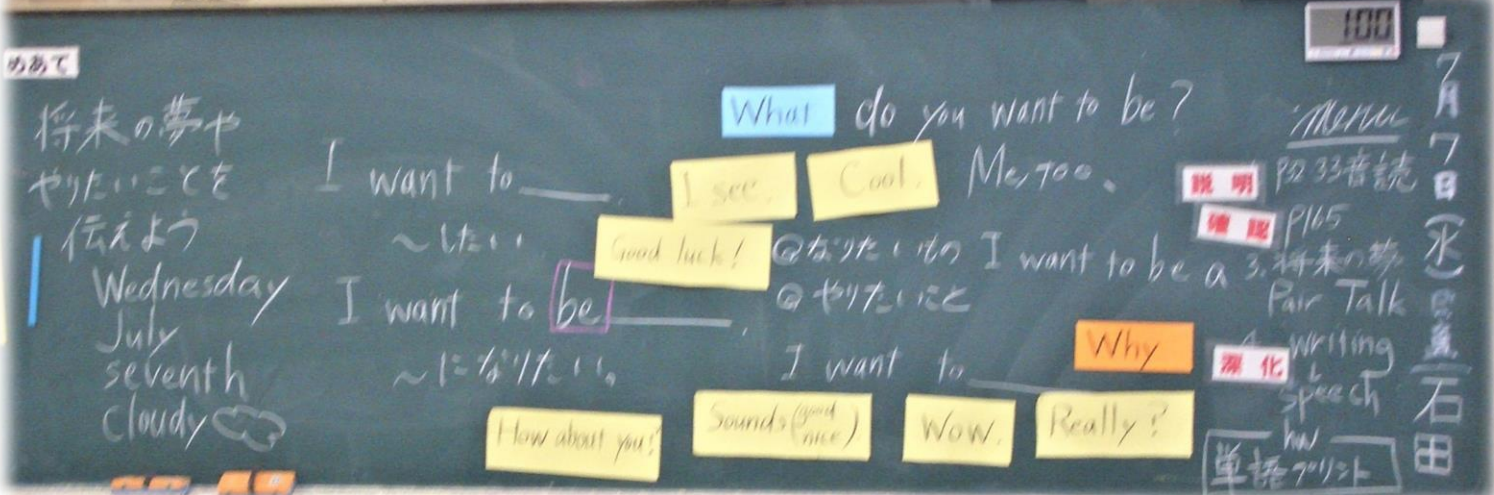 めあて
将来の夢や
やりたいことを
伝えよう
Wednesday
July
seventh
cloudy
I want to ____.
～したい
I want to be ____.
～になりたい。
What do you want to be?
I see.
Cool.
Me, too.
Good luck!
@なりたいもの I want to be a
@やりたいこと
I want to ____
Why
How about you?
Sounds (good nice).
Wow.
Really?
100
menu
説明 P32 33音読
確認 P165
3. 将来の夢
Pair Talk
深化 4. writing
↓
speech
hw
単語プリント
7月7日(水)
石田